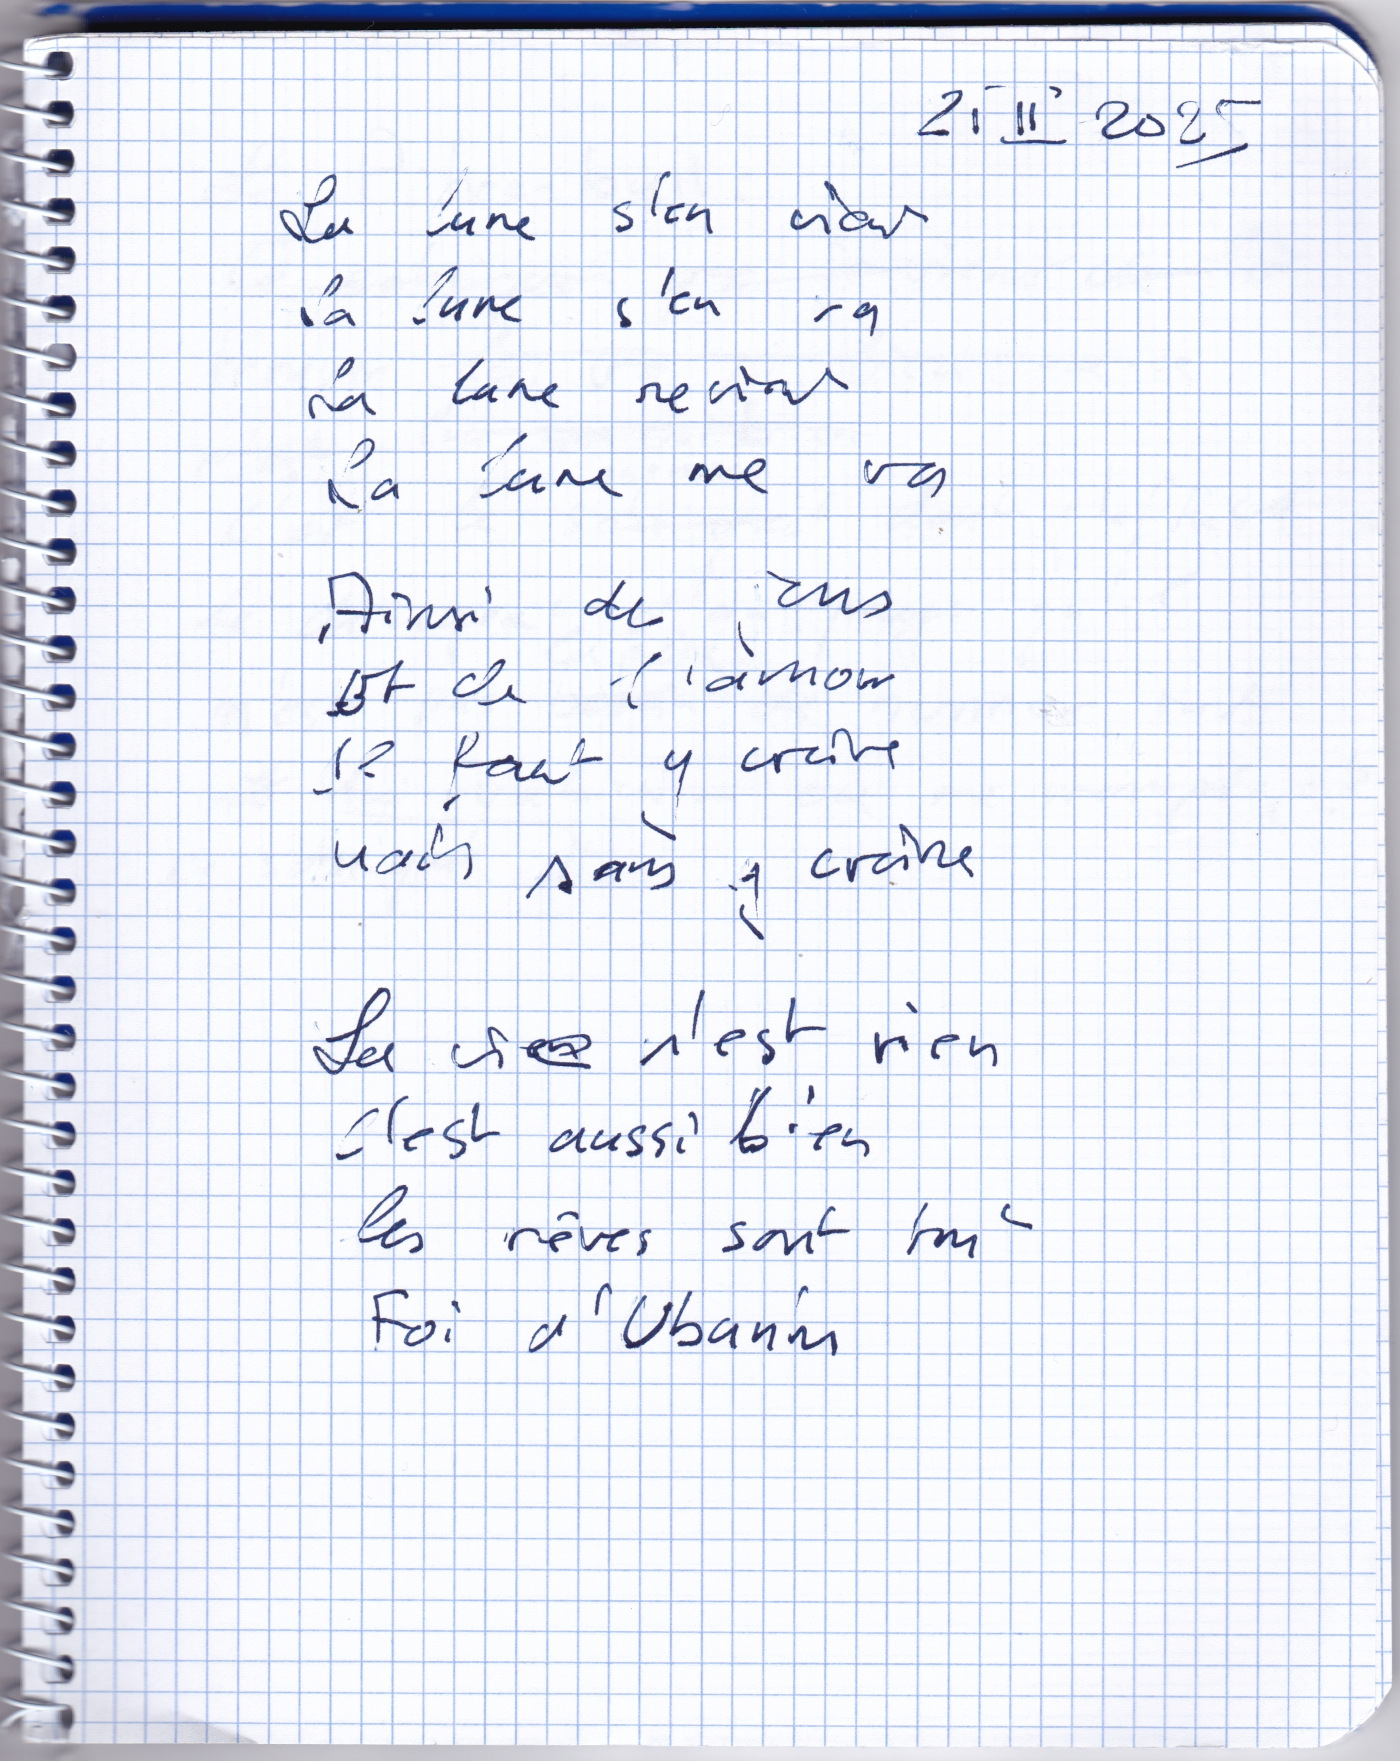 21 II 2025
La lune s'en vient
La lune s'en va
La lune revient
La lune me va
Ainsi de
Et de l'amour
Il faut y croire
mais sans y croire
La vie n'est rien
C'est aussi bien
les rêves sont tout
Foi d'Ubanin